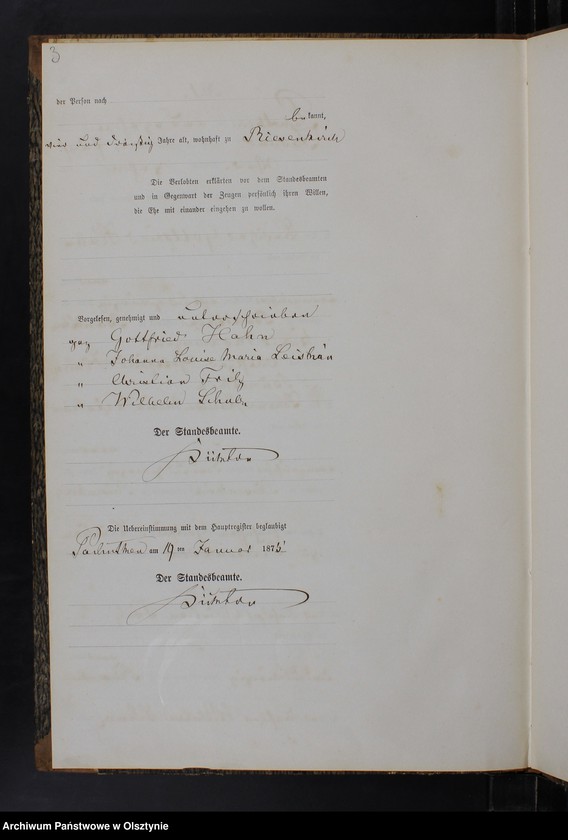 3
der Person nach
be kannt,
vier und dreißig Jahre alt, wohnhaft zu Riesenkirch
Die Verlobten erklärten vor dem Standesbeamten
und in Gegenwart der Zeugen persönlich ihren Willen,
die Ehe mit einander eingehen zu wollen.
Vorgelesen, genehmigt und unterschrieben
gez Gottfried Hahn
" Johanna Louise Maria
" Christian Fritz
" Wilhelm Schulz
Der Standesbeamte.
Die Uebereinstimmung mit dem Hauptregister beglaubigt
am 19 ten Januar 1875
Der Standesbeamte.
Archiwum Państwowe w Olsztynie